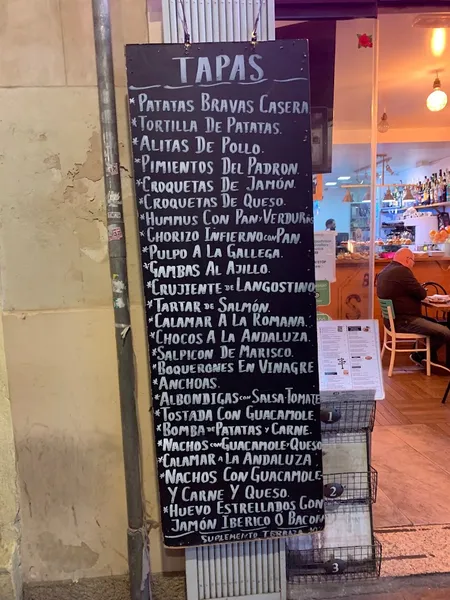 TAPAS
* PATATAS BRAVAS CASERA
* TORTILLA DE PATATAS.
* ALITAS DE POLLO.
* PIMIENTOS DEL PADRON.
* CROQUETAS DE JAMÓN.
* CROQUETAS DE QUESO.
* HUMMUS CON PAN Y VERDURAS
* CHORIZO INFIERNO CON PAN.
* PULPO A LA GALLEGA.
* GAMBAS AL AJILLO.
* CRUJIENTE DE LANGOSTINO
* TARTAR DE SALMÓN.
* CALAMAR A LA ROMANA.
* CHOCOS A LA ANDALUZA.
* SALPICON DE MARISCO.
* BOQUERONES EN VINAGRE
* ANCHOAS.
* ALBONDIGAS CON SALSA TOMATE
* TOSTADA CON GUACAMOLE
* BOMBA DE PATATAS Y CARNE.
* NACHOS CON GUACAMOLE Y QUESO
* CALAMAR A LA ANDALUZA
* NACHOS CON GUACAMOLE
Y CARNE Y QUESO.
* HUEVO ESTRELLADOS CON
JAMÓN IBERICO O BACON
SUPLEMENTO TERRAZA
1
2
3